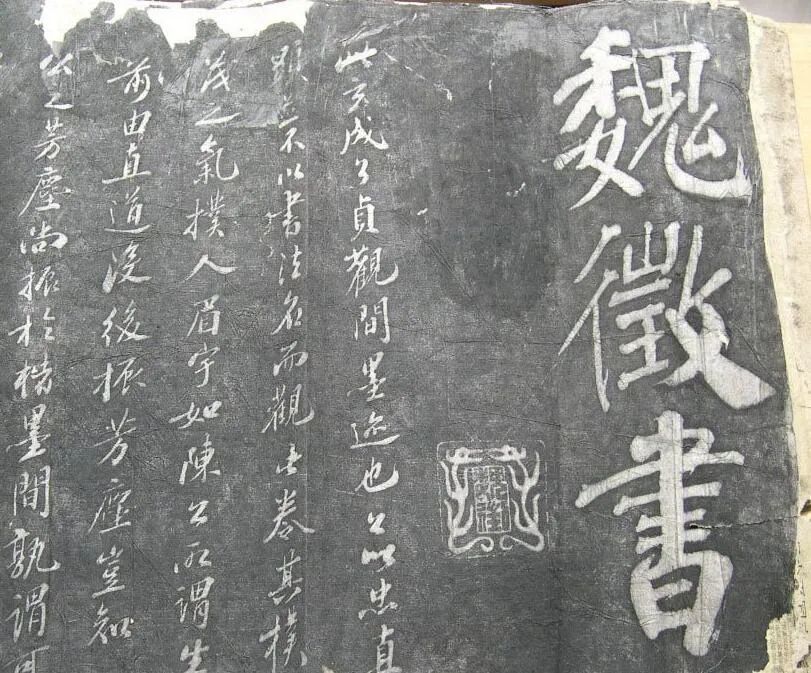 魏徵書
此玄成公貞觀間墨迹也公以忠貞
顯不以書法名而觀此卷其樸
茂之氣撲人眉宇如陳公所謂生
前由直道沒後振芳塵豈知
公之芳塵尚振於楮墨間孰謂可